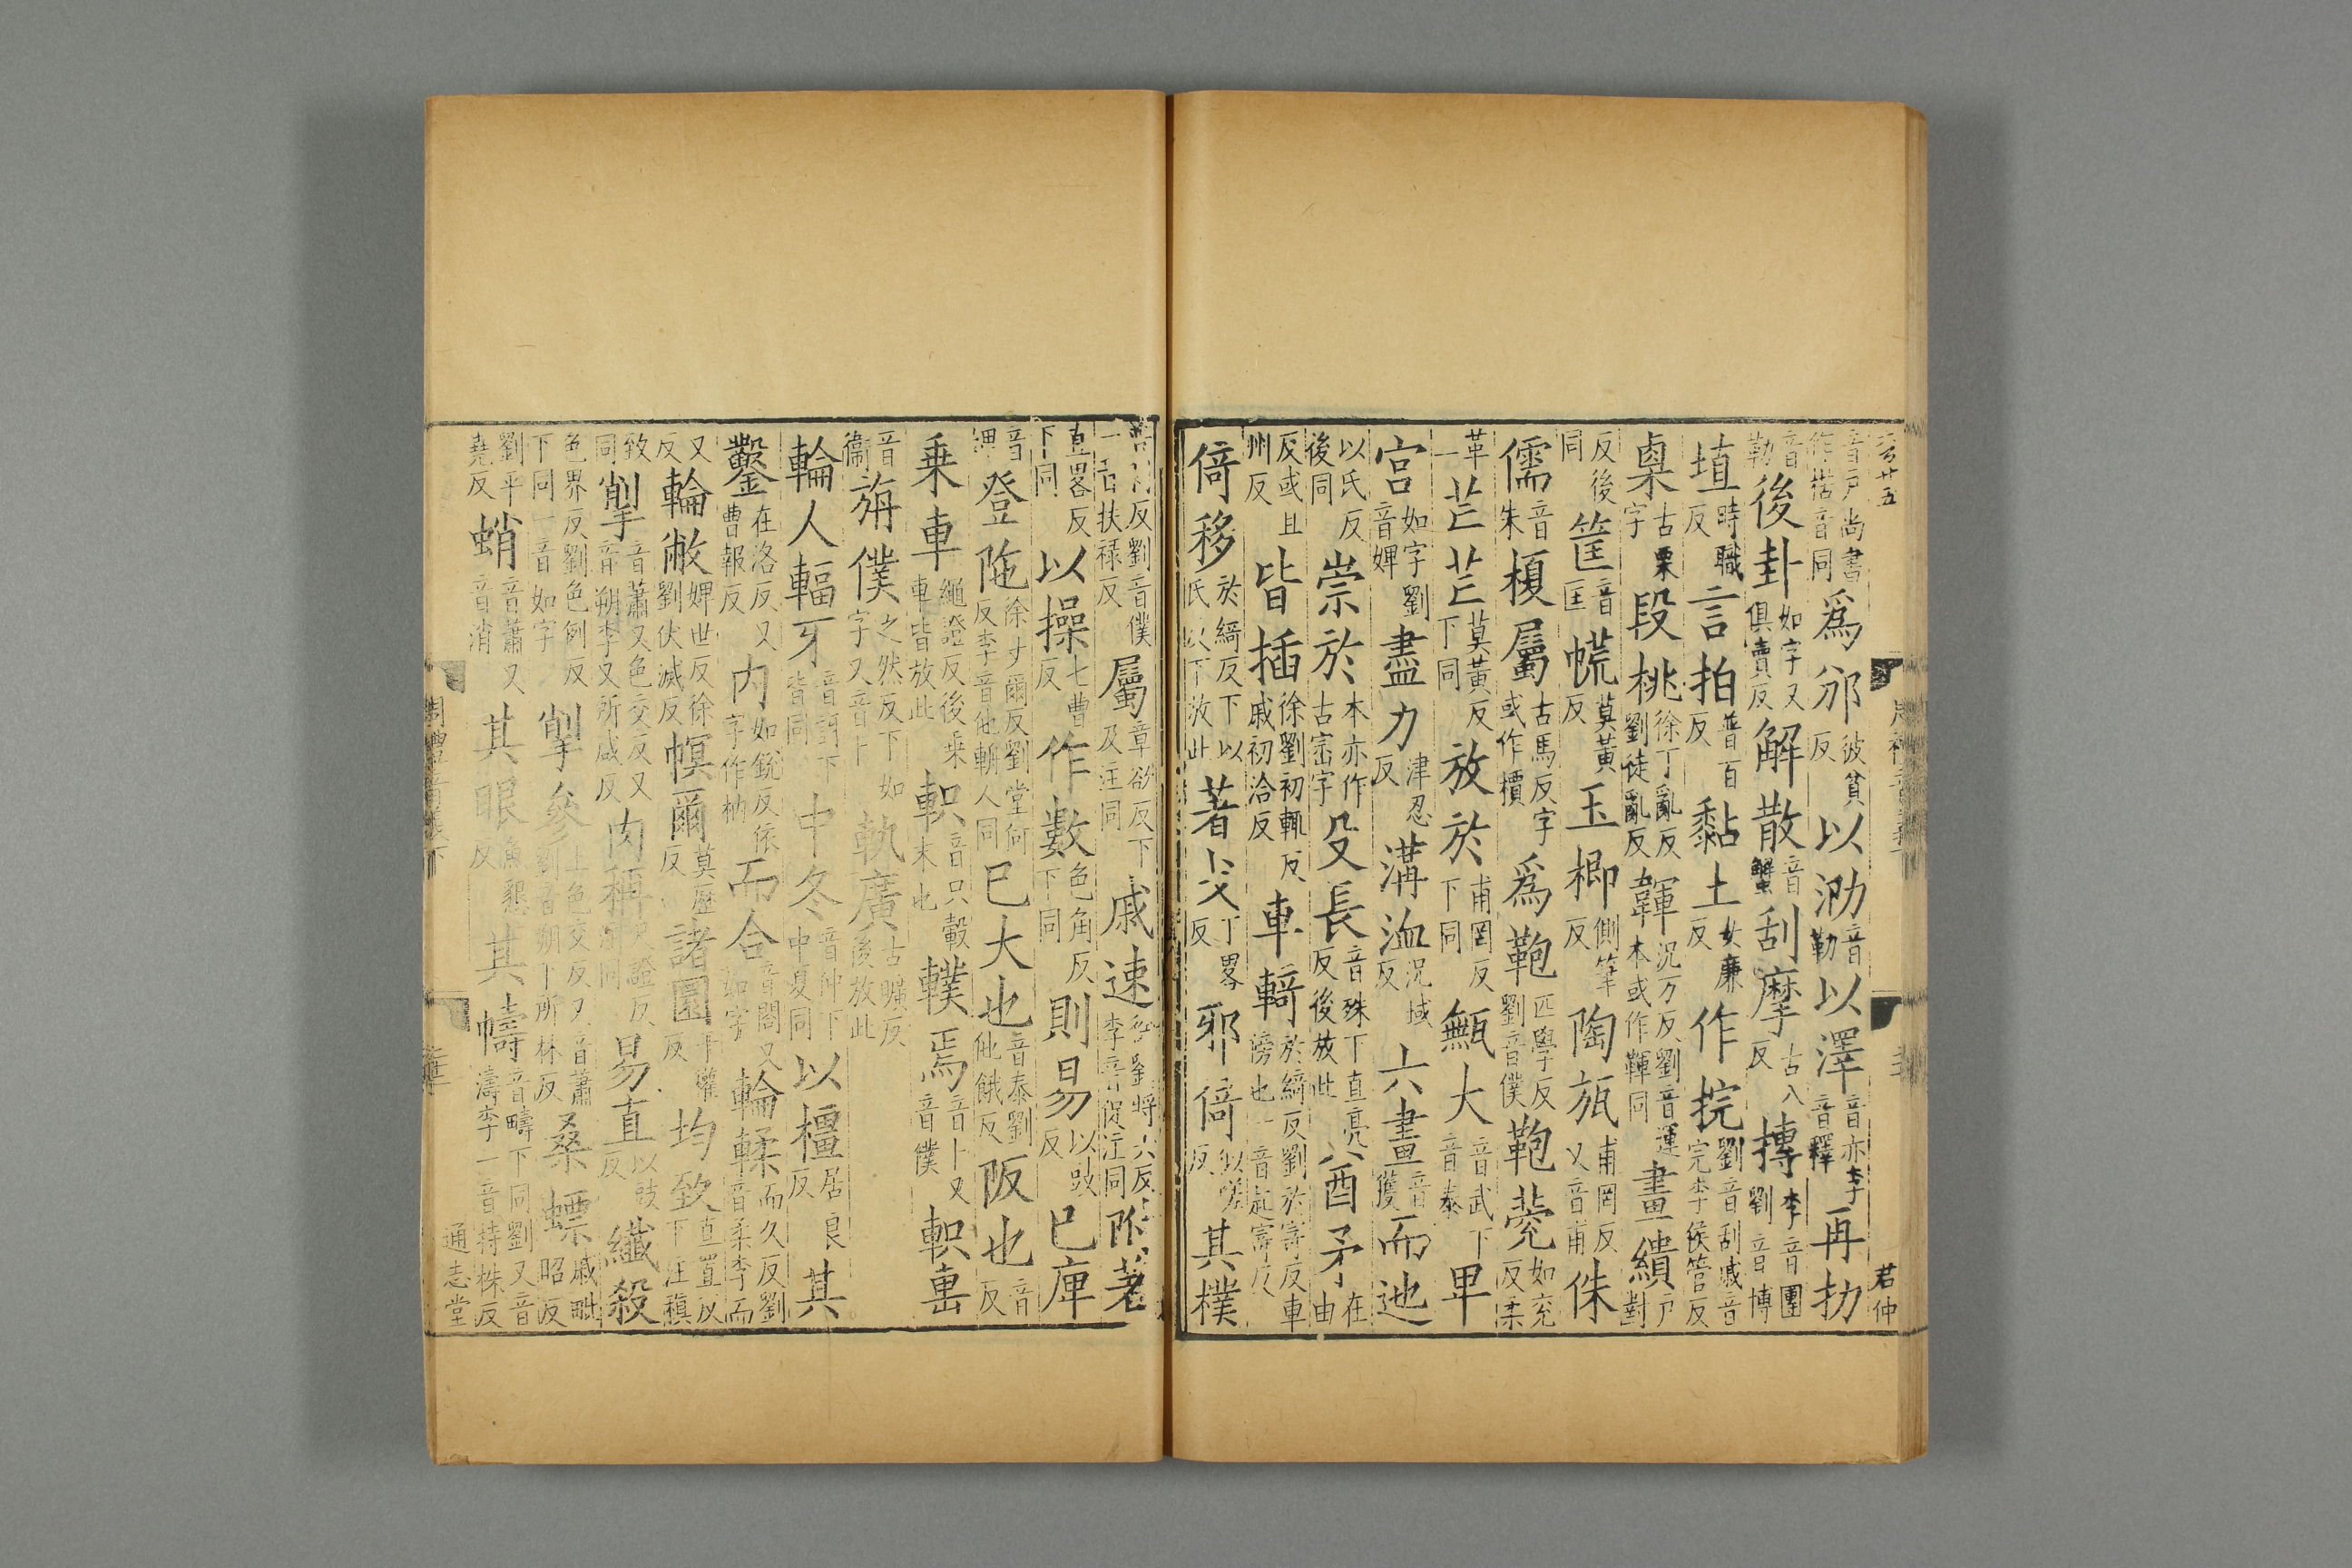 音戶尚書作楛音同爲邠彼貧反以泐音勒以澤音亦李音釋再扐
音勒後卦如字又俱賣反解散音蟹刮摩古八反摶李音團劉音博
埴時職反言拍普百反黏土女廉反作捖劉音刮戚音完李侯管反
㮚古栗字段桃徐丁亂反劉徒亂反韗況万反劉音運本或作鞾同畫繢戶對
反後同筐音匡㡆莫黃反玉楖側筆反陶瓬甫罔反又音甫侏
儒音朱榎屬古馬反字或作檟爲鞄匹學反劉音僕鞄㼱如兖反柔
革一芒芒莫黃反下同放於甫罔反下同甒大音武下音泰卑
宮如字劉音婢盡力津忍反溝洫況域反六畫音獲而迆
以氏反後同崇於本亦作古崈字殳長音殊下直亮反後放此八酋矛在由
反或且州反皆插徐劉初輒反戚初洽反車輢於綺反劉於寄反車傍也一音起寄反
倚移於綺反下以氏以下汝此著戈丁畧反邪倚似嗟反其樸
屬章欲反下及注同戚速李音促注同附著
直畧反下同以操七曹反作數色角反下同則易以豉反已庳
音婢登阤徐丈爾反劉堂何反李音他輞人同已大也音泰劉他餓反阪也音反
乗車繩證反後乗車皆放此軹音只轂末也轐焉音卜又音僕軹軎
音衞旃僕之然反下如字又音卜軌廣古曠反後放此
輪人輻牙音訝下皆同中冬音仲下中夏同以橿居良反其
鑿在洛反又曹報反内如銳反依字作枘而合音閤又如字輪輮而久反劉音柔李而
又反輪敝婢世反徐劉伏滅反幎爾莫歷反諸圜于權反均致直置反下注稹
致同掣音蕭又色交反又音朔李又所咸反肉稱尺證反注同易直以豉反纖殺
色界反劉色例反下同一音如字掣參上色交反又音蕭劉音朔下所林反桑螵戚毗昭反
劉平堯反蛸音蕭又音消其眼魚懇反其幬音疇下同劉又音濤李一音持株反
通志堂
君仲